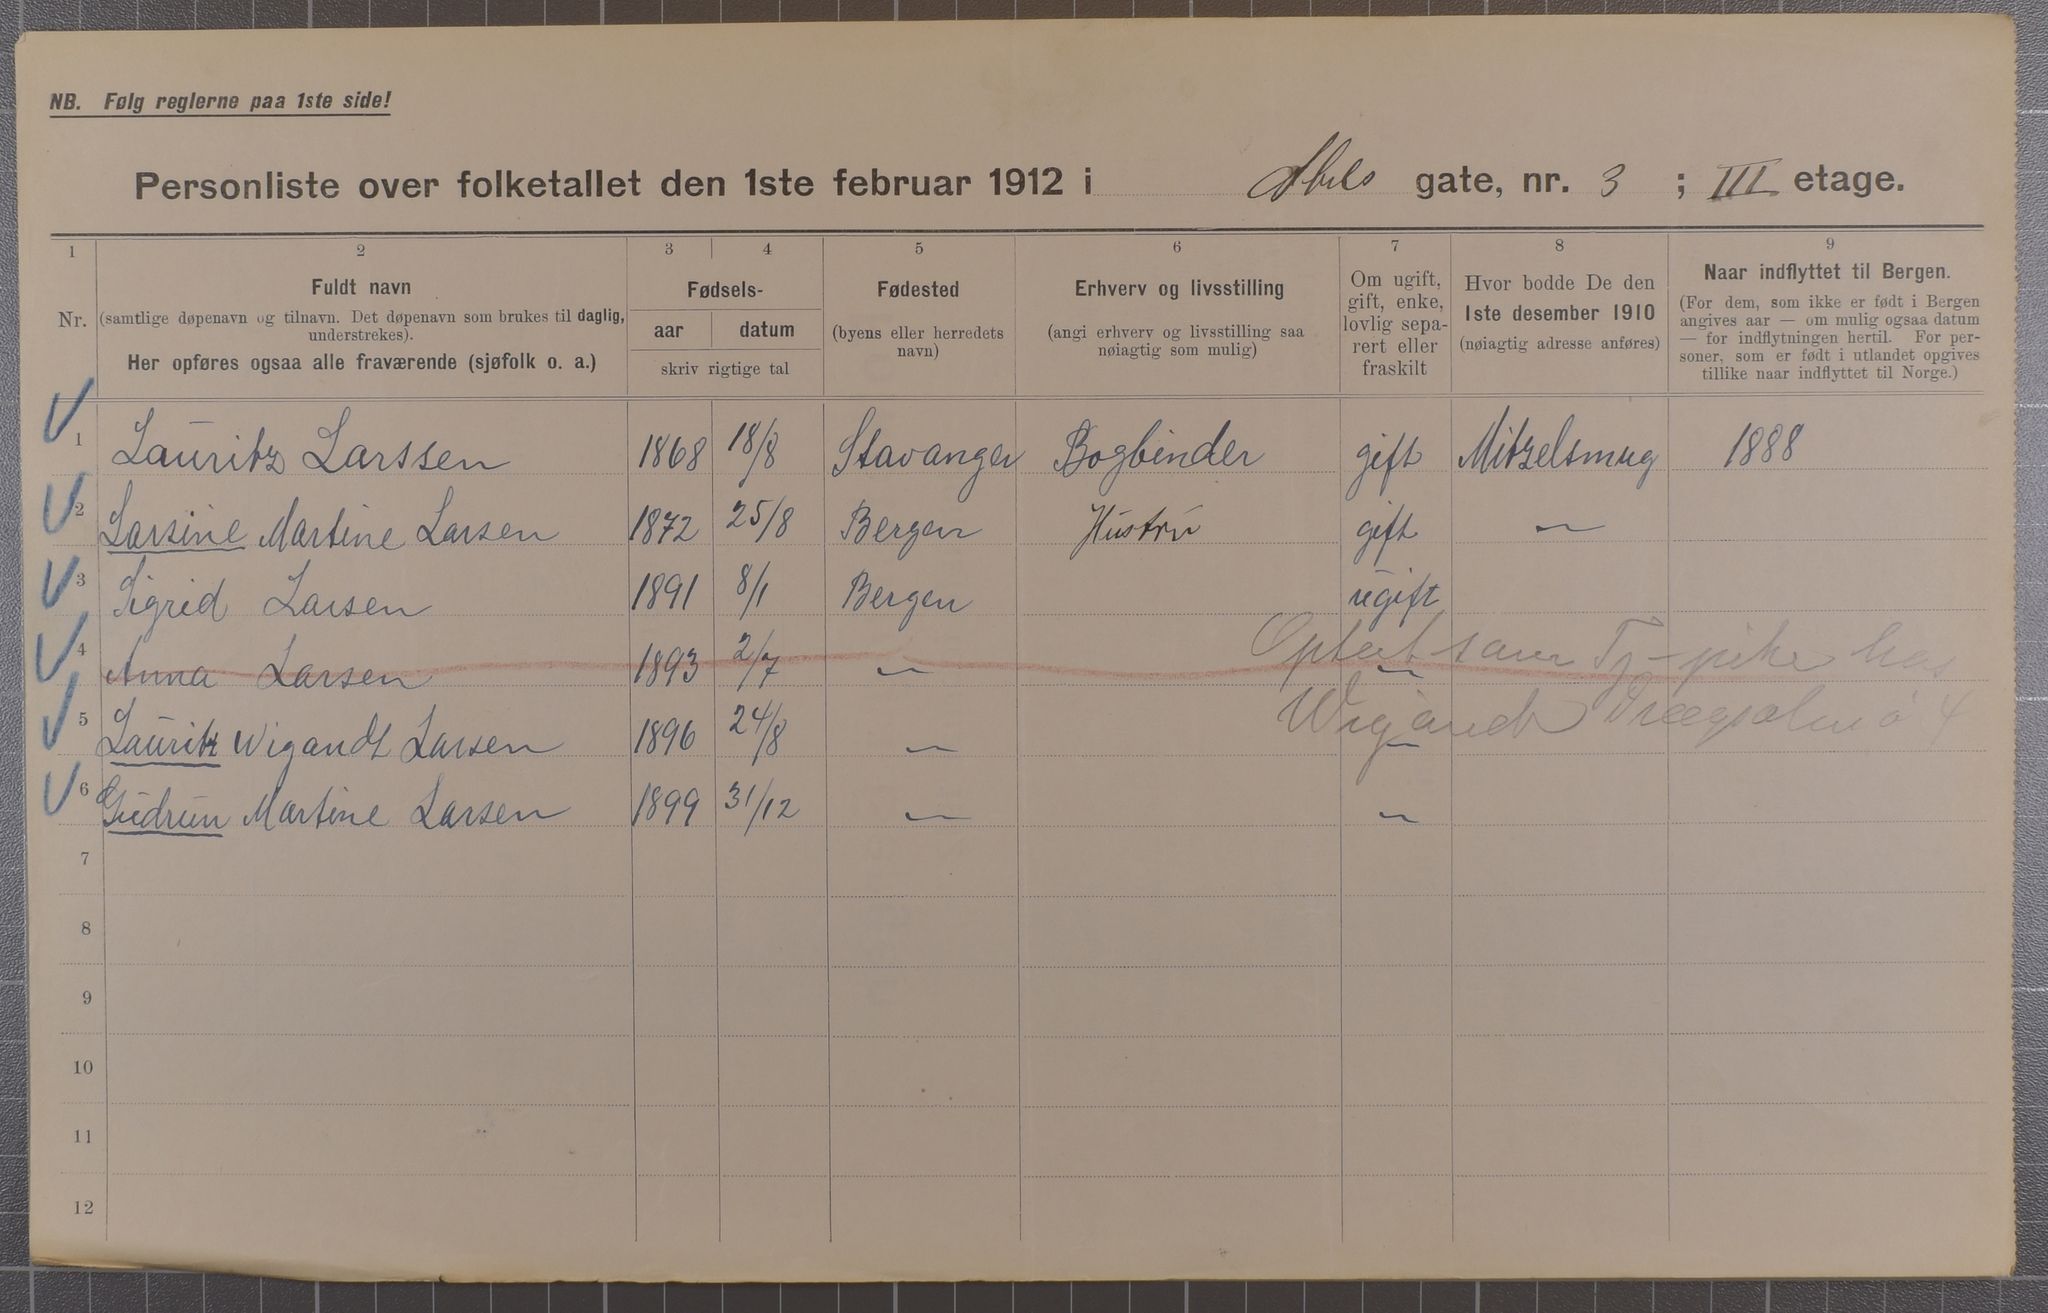 NB. Følg reglerne paa 1ste side!
Personliste over folketallet den 1ste februar 1912 i Abels gate, nr. 3 ; III etage.
1 2 3 4 5 6 7 8 9
Nr.
Fuldt navn
(samtlige døpenavn og tilnavn. Det døpenavn som brukes til daglig, understrekes).
Her opføres ogsaa alle fraværende (sjøfolk o. a.)
Fødsels-
aar datum
skriv rigtige tal
Fødested
(byens eller herredets
navn)
Erhverv og livsstilling
(angi erhverv og livsstilling saa
nøiagtig som mulig)
Om ugift,
gift, enke,
lovlig sepa-
rert eller
fraskilt
Hvor bodde De den
1ste desember 1910
(nøiagtig adresse anføres)
Naar indflyttet til Bergen.
(For dem, som ikke er født i Bergen
angives aar — om mulig ogsaa datum
— for indflytningen hertil. For per-
soner, som er født i utlandet opgives
tillike naar indflyttet til Norge.)
1 Lauritz Larssen 1868 18/8 Stavanger Bogbinder gift Mitzelsmug 1888
2 Larsine Martine Larsen 1872 25/8 Bergen Hustru gift —
3 Sigrid Larsen 1891 8/1 Bergen ugift
4 Anna Larsen 1893 2/7 — —
Optat som Tj-pike hos
5 Lauritz Wigandt Larsen 1896 24/8 — —
Wigandt 4
6 Gudrun Martine Larsen 1899 31/12 — —
7
8
9
10
11
12